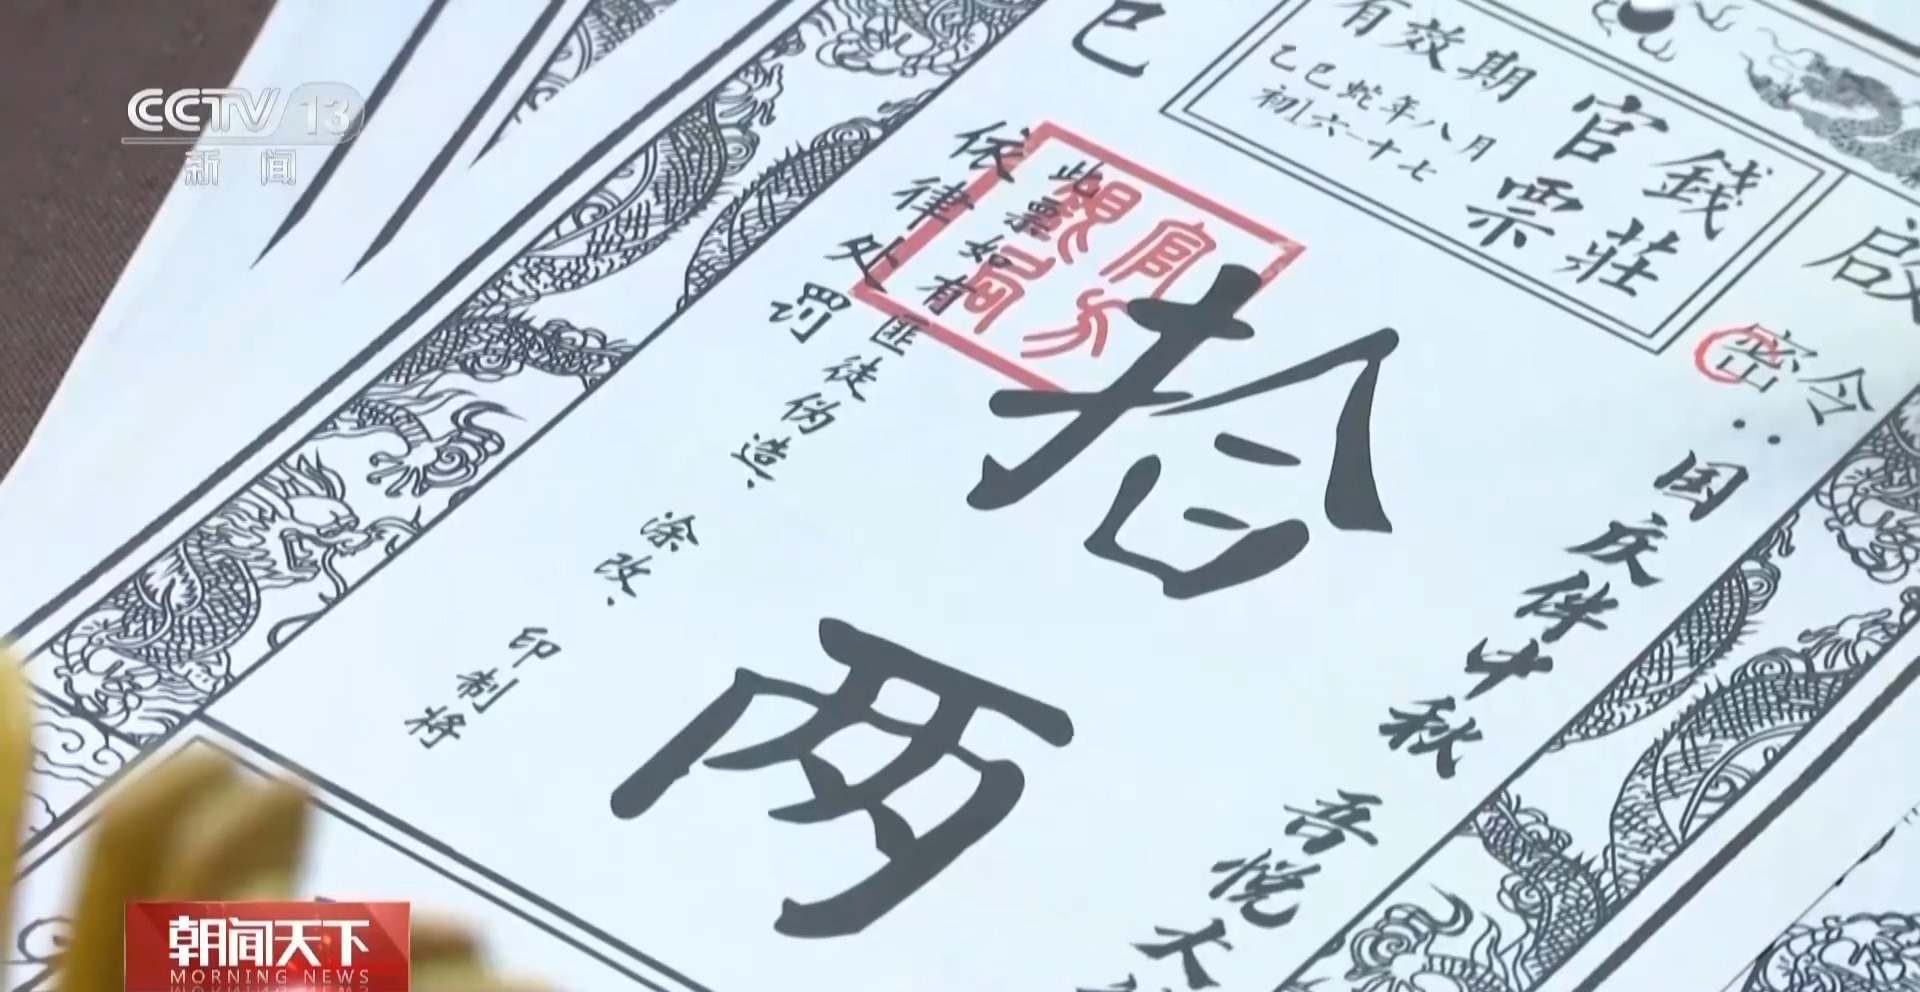 CCTV 13
新闻
巳
有效期
乙巳蛇年八月
初六一十七
錢莊
官票
启
密令：国庆伴中秋
吾悦大
拾两
此票如有匪徒伪造、涂改、印制将
依律处罚
朝闻天下
MORNING NEWS